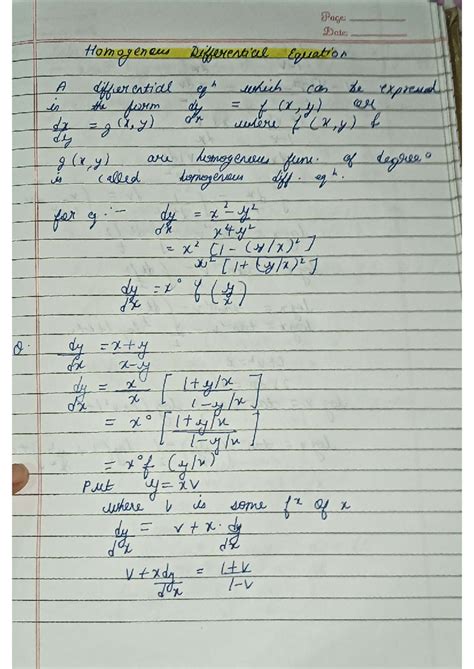 Page:
Date:
Homogenous Differential Equation
A differential eqⁿ which can be expressed
in the form dy/dx = f(x,y) or
dx/dy = g(x,y) where f(x,y) &
g(x,y) are homogenous func. of degree 0
is called homogenous diff. eqⁿ.
for eg :- dy/dx = x² - y² / x² + y²
= x² [1 - (y/x)²] / x² [1 + (y/x)²]
dy/dx = x° f(y/x)
Q. dy/dx = x+y / x-y
dy/dx = x/x [1+y/x / 1-y/x]
= x° [1+y/x / 1-y/x]
= x° f (y/x)
Put y = xv
where v is some fˣ of x
dy/dx = v + x. dy/dx
v + x dy/dx = 1+v / 1-v